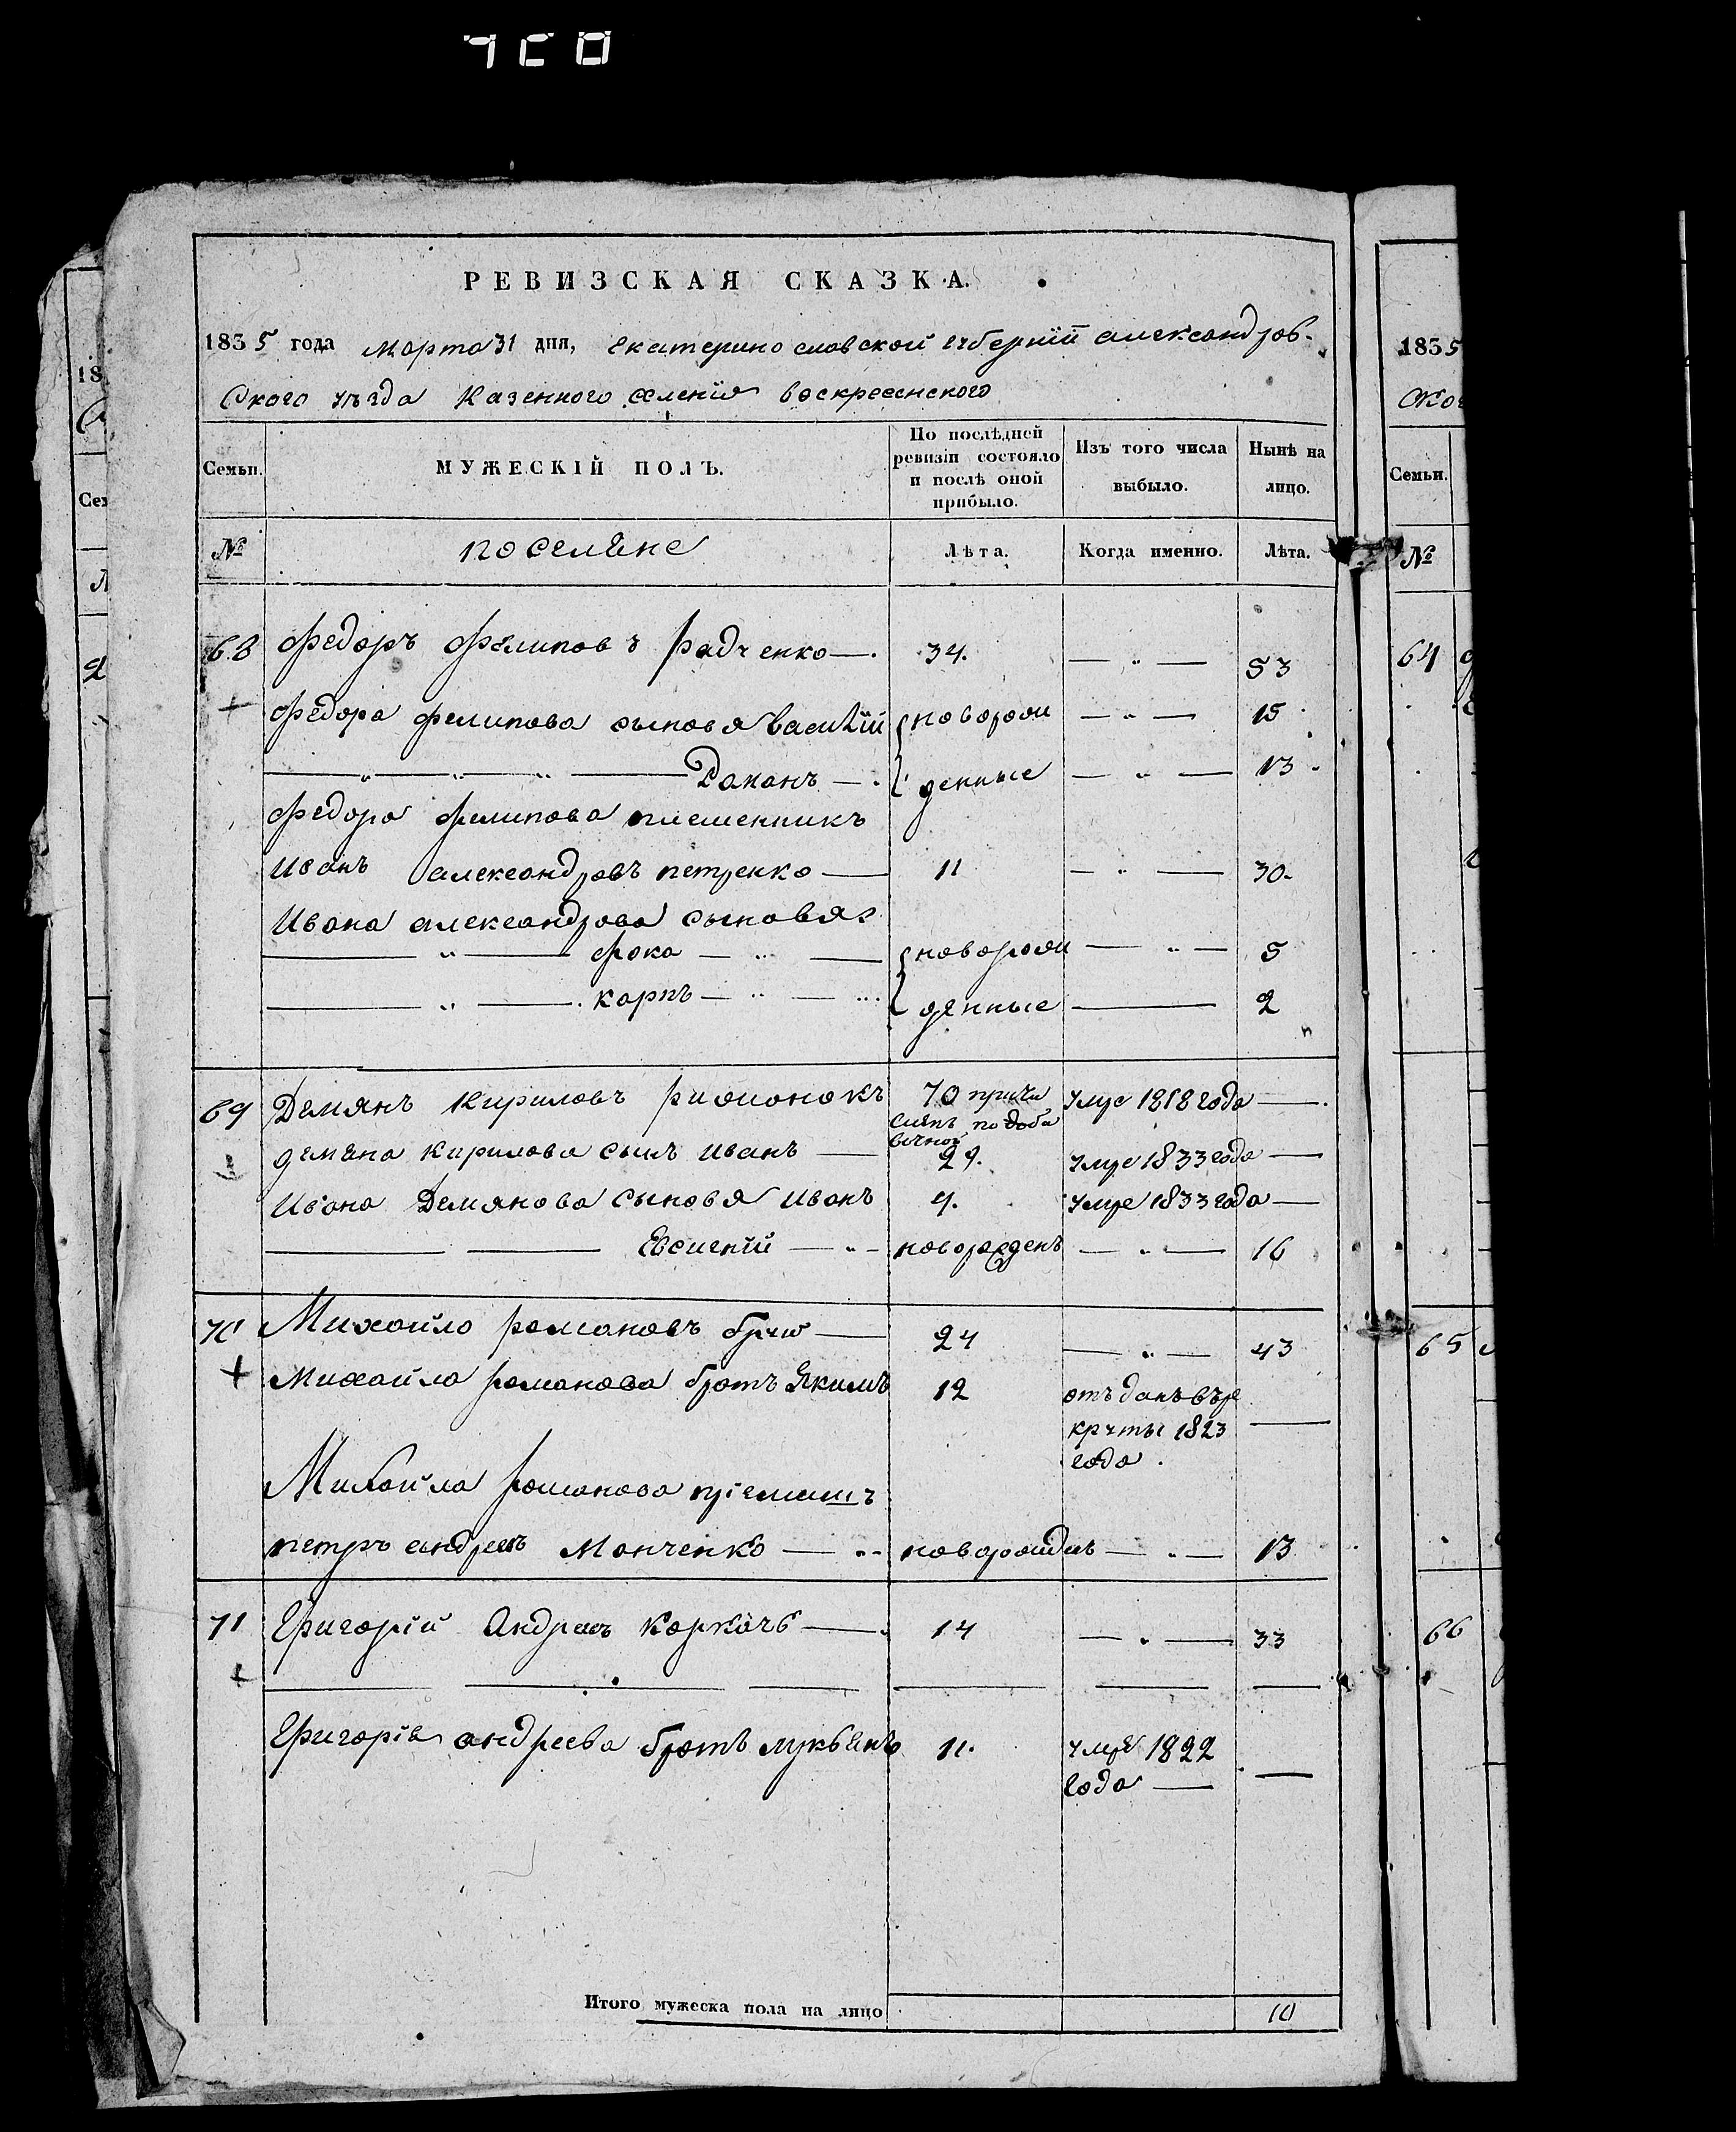 РЕВИЗСКАЯ СКАЗКА.
1835 года марта 31 дня, Екатеринославской губернїй александров-
ского уъзда Казенного селенїя воскресенского
Семьи. МУЖЕСКІЙ ПОЛЪ. По послѣдней ревизіи состояло и послѣ оной прибыло. Изъ того числа выбыло. Нынѣ на лицо.
№ поселяне Лѣта. Когда именно. Лѣта.
68 Федоръ Фелиповъ Радченко 34. 53
Федора фелипова сыновя Василїй новорож 15
Романъ денные 13
Федора фелипова племенникъ
Иванъ александровъ петренко 11 30.
Ивана александрова сыновя
фока новорож 5
карпъ денные 2
69 Демянъ Кириловъ 70 причи Умре 1818 года
слѣнъ по доба
вочной
демяна Кирилова сынъ иванъ 29. умре 1833 года
Ивана Демянова Сыновя иванъ 4. умре 1833 года
Евсигнїй новорожденъ 16
70 Михайло романовъ 24 43
Михайла романова братъ Якимъ 12 отъданъ въре
круты 1823
года
Михайла романова прїемишъ
петръ андреевъ Манченко новорожднъ 13
71 Григорїй Андреевъ Коркачъ 14 33
Григорїя андреева братъ лукьянъ 11. умре 1822
года
Итого мужеска пола на лицо 10
1835
Семьи.
№
64
65
66